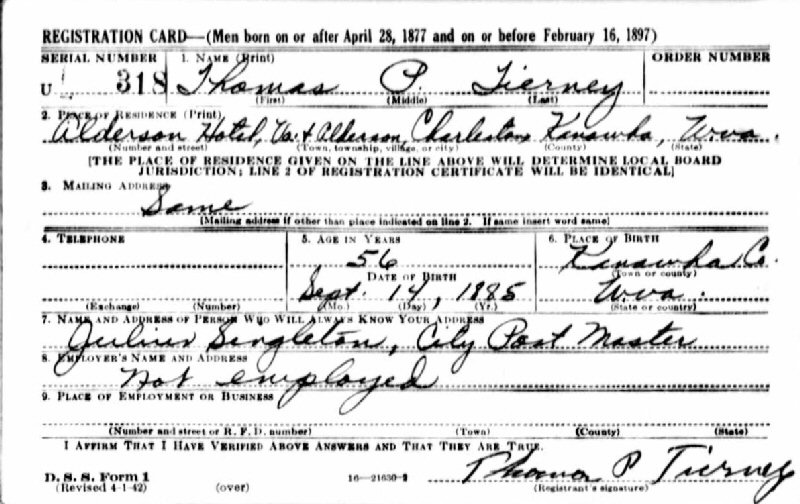 REGISTRATION CARD—(Men born on or after April 28, 1877 and on or before February 16, 1897)
SERIAL NUMBER 1. NAME (Print) ORDER NUMBER
U 318 Thomas P. Tierney
(First) (Middle) (Last)
2. PLACE OF RESIDENCE (Print)
Alderson Hotel, Va. & Alderson, Charleston, Kanawha, W.va.
(Number and street) (Town, township, village, or city) (County) (State)
[THE PLACE OF RESIDENCE GIVEN ON THE LINE ABOVE WILL DETERMINE LOCAL BOARD
JURISDICTION; LINE 2 OF REGISTRATION CERTIFICATE WILL BE IDENTICAL]
3. MAILING ADDRESS
Same
[Mailing address if other than place indicated on line 2. If same insert word same]
4. TELEPHONE 5. AGE IN YEARS 6. PLACE OF BIRTH
56 Kanawha Co.
DATE OF BIRTH (Town or county)
Sept. 14, 1885 W.va.
(Exchange) (Number) (Mo.) (Day) (Yr.) (State or country)
7. NAME AND ADDRESS OF PERSON WHO WILL ALWAYS KNOW YOUR ADDRESS
Julius Singleton, City Post Master
8. EMPLOYER'S NAME AND ADDRESS
Not employed
9. PLACE OF EMPLOYMENT OR BUSINESS
(Number and street or R. F. D. number) (Town) (County) (State)
I AFFIRM THAT I HAVE VERIFIED ABOVE ANSWERS AND THAT THEY ARE TRUE.
Thomas P Tierney
D. S. S. Form 1
(Revised 4-1-42) (over) 16—21630-2 (Registrant's signature)